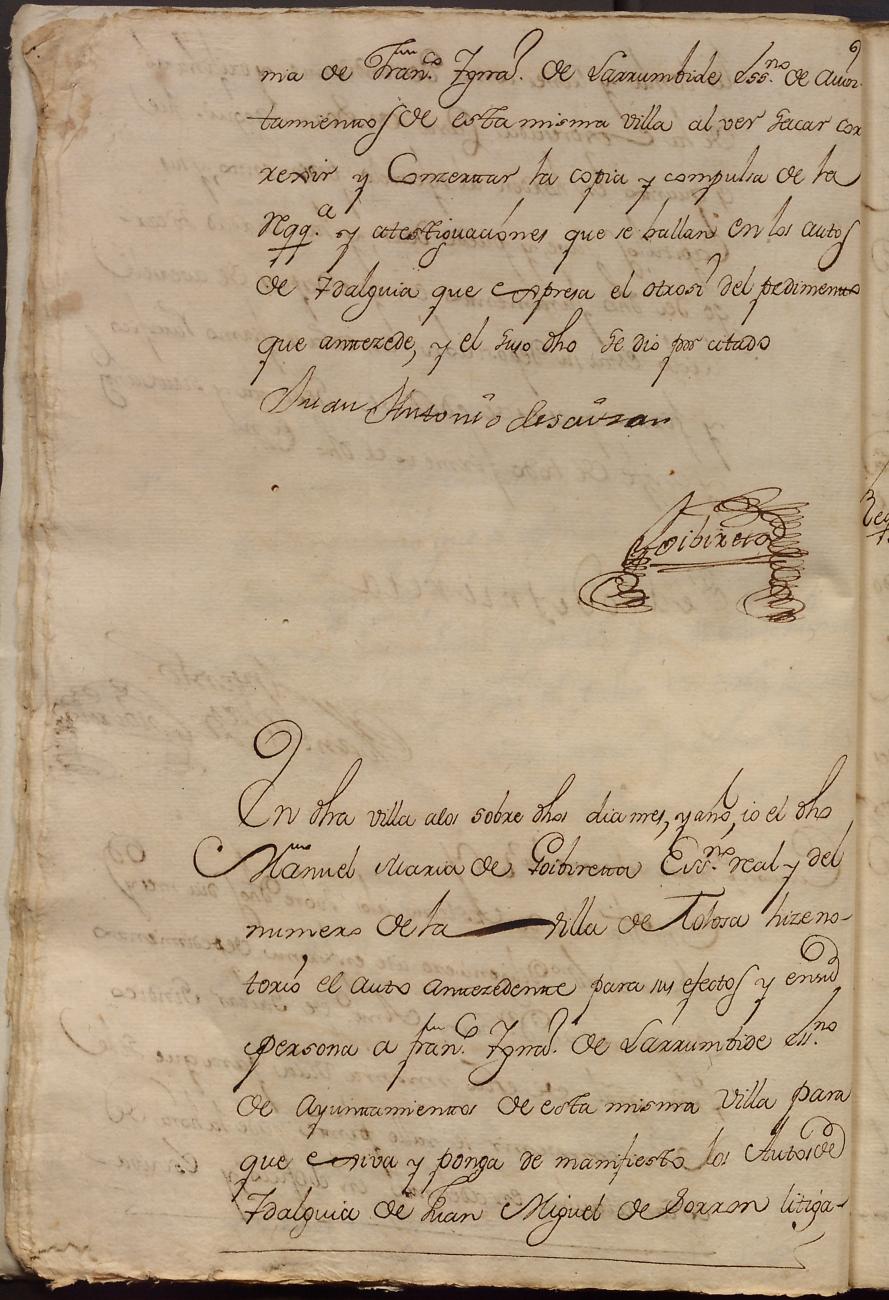 ma de Fran.co Ygna.o de Larrumbide Ess.no de aiun-
tamientos de esta misma villa al ver sacar cor
rexir y Conzertar la copia y compulsa de la
y atestiguaciones que se hallan en los autos
de Idalguia que expresa el otrosi del pedimento
que antezede, y el suso dho se dio por citado
Juan Antonio
Goibireta
En dha villa a los sobre dhos dia mes, y año, io el dho
Manuel Maria de Goibiretta Ess.no real y del
numero de la villa de Tolosa hize no-
torio el auto antezedente para sus efectos y en su
persona a fran.co Ygna.o de Larrumbide ess.no
de Ayuntamientos de esta misma villa para
que exiva y ponga de manifiesto los Autos de
Idalguia de Juan Miguel de Sorron litiga-